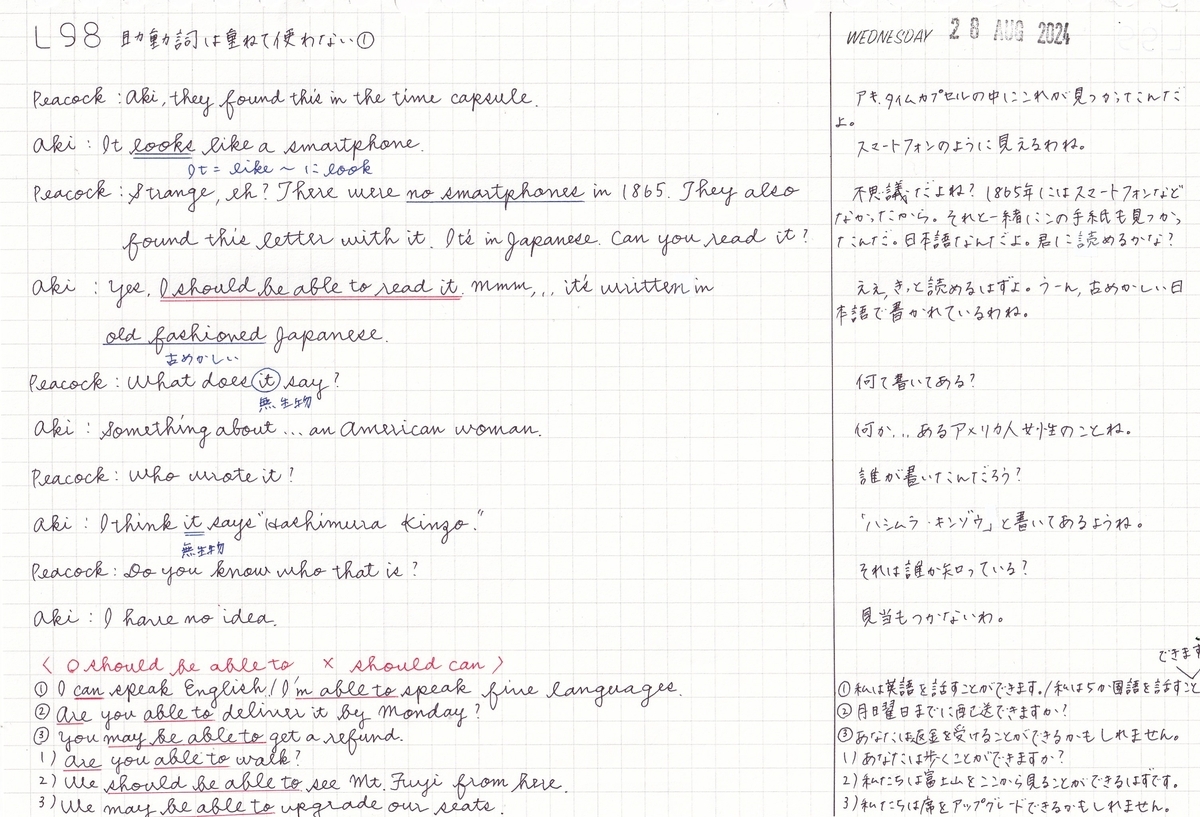 L98 助動詞は重ねて使わない①
WEDNESDAY 28 AUG 2024
Peacock : Aki, they found this in the time capsule.
アキ、タイムカプセルの中にこれが見つかったんだ
よ。
Aki : It looks like a smartphone.
スマートフォンのように見えるわね。
It = like ~ に look
Peacock : Strange, eh? There were no smartphones in 1865. They also
不思議だよね? 1865年にはスマートフォンなど
found this letter with it. It's in Japanese. Can you read it?
なかったから。それと一緒にこの手紙も見つかっ
たんだ。日本語なんだよ。君に読めるかな?
Aki : Yes. I should be able to read it. Mmm,.. it's written in
ええ、きっと読めるはずよ。うーん、古めかしい日
old fashioned Japanese.
本語で書かれているわね。
古めかしい
Peacock : What does it say?
何て書いてある?
無生物
Aki : Something about ... an American woman.
何か... あるアメリカ人女性のことね。
Peacock : Who wrote it?
誰が書いたんだろう?
Aki : I think it says "Hashimura Kinzo."
「ハシムラ・キンゾウ」と書いてあるようね。
無生物
Peacock : Do you know who that is?
それは誰か知っている?
Aki : I have no idea.
見当もつかないわ。
< ○ should be able to × should can >
できます
① I can speak English./I'm able to speak five languages.
①私は英語を話すことができます。/私は5か国語を話すこと
② Are you able to deliver it by Monday?
②月曜日までに配送できますか?
③ You may be able to get a refund.
③あなたは返金を受けることができるかもしれません。
1) Are you able to walk?
1)あなたは歩くことができますか?
2) We should be able to see Mt. Fuji from here.
2)私たちは富士山をここから見ることができるはずです。
3) We may be able to upgrade our seats.
3)私たちは席をアップグレードできるかもしれません。